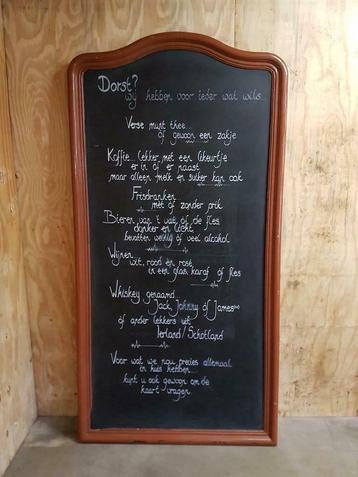 Dorst?
Wij hebben voor ieder wat wils...
Verse munt thee...
of gewoon een zakje
Koffie... lekker met een likeurtje
er in of er naast
maar alleen melk en suiker kan ook
Frisdranken...
met of zonder prik
Bieren van 't vat of de fles
donker en licht,
bevatten weinig of veel alcohol
Wijnen...
wit, rood en rosé
in een glas, karaf of fles
Whiskey genaamd...
Jack, Johnny of James
of ander lekkers uit
Ierland/Schotland
Voor wat we nou precies allemaal
in huis hebben...
kunt u ook gewoon om de
kaart vragen